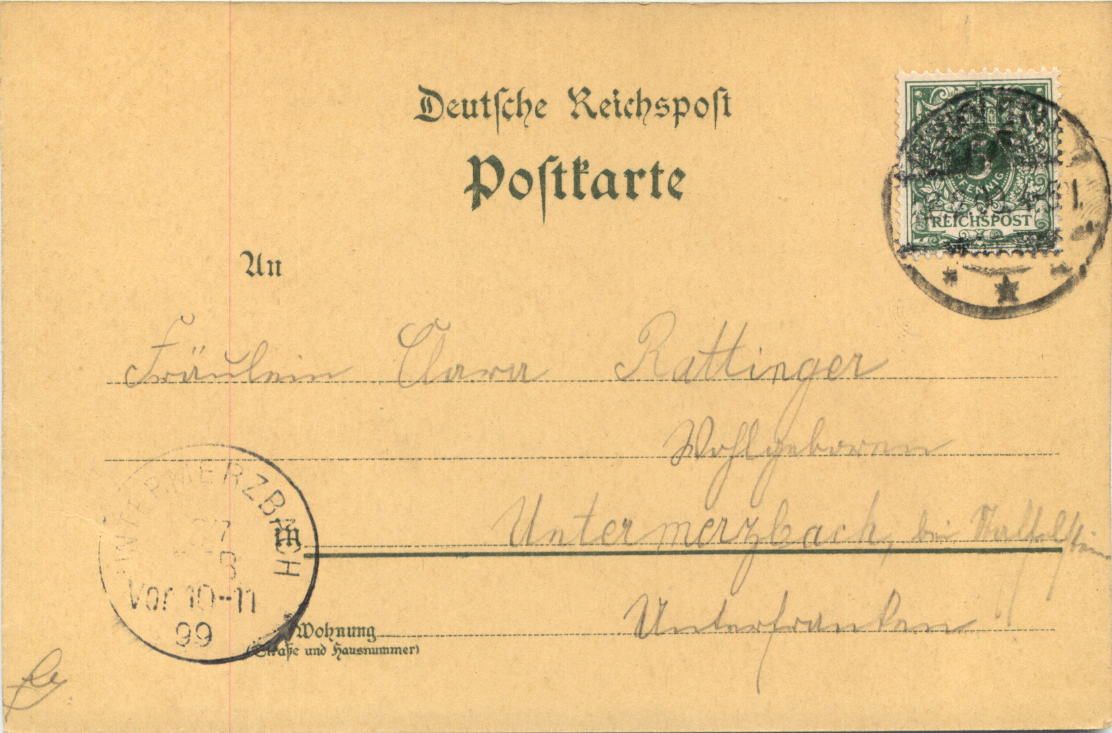 Deutsche Reichspost
Postkarte
5
PFENNIG
REICHSPOST
An
Fräulein Clara Rattinger
Wohlgeboren
in Untermerzbach, bei
Unterfranken
UNTERMERZBACH
27
8
Vor 10-11
99
Wohnung
(Straße und Hausnummer)